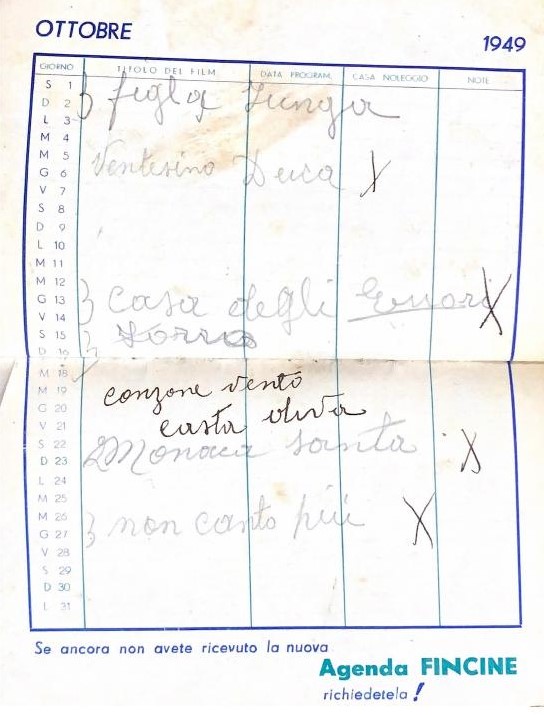 OTTOBRE
1949
GIORNO TITOLO DEL FILM DATA PROGRAM. CASA NOLEGGIO NOTE
S 1
D 2 figlia Jungla
L 3
M 4
M 5
G 6 Ventesimo Duca X
V 7
S 8
D 9
L 10
M 11
M 12
G 13 Casa degli Errori X
V 14
S 15 Zorro
D 16
M 18
M 19 canzone vento
G 20
V 21 casta diva
S 22 Monaca santa
D 23 X
L 24
M 25
M 26 non canto più X
G 27
V 28
S 29
D 30
L 31
Se ancora non avete ricevuto la nuova
Agenda FINCINE
richiedetela !